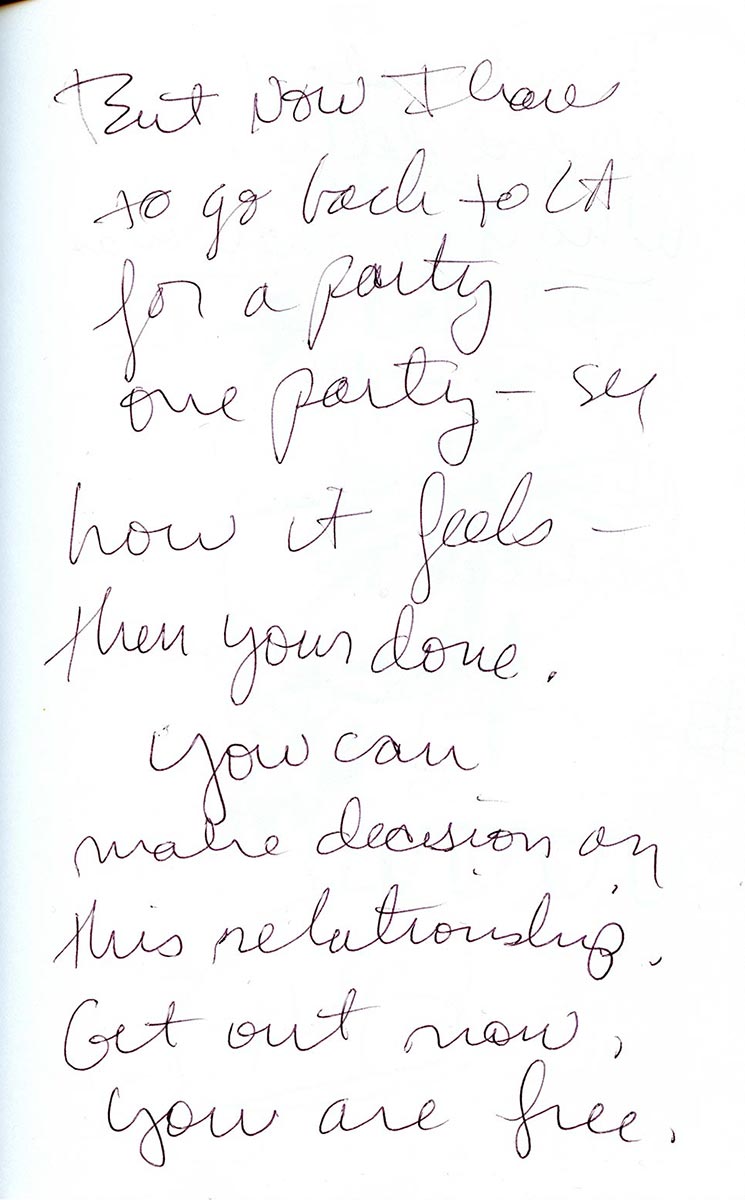 But Now I have
to go back to LA
for a party –
one party – see
how it feels –
then your done.
You can
make decision on
this relationship.
Get out now,
you are free.